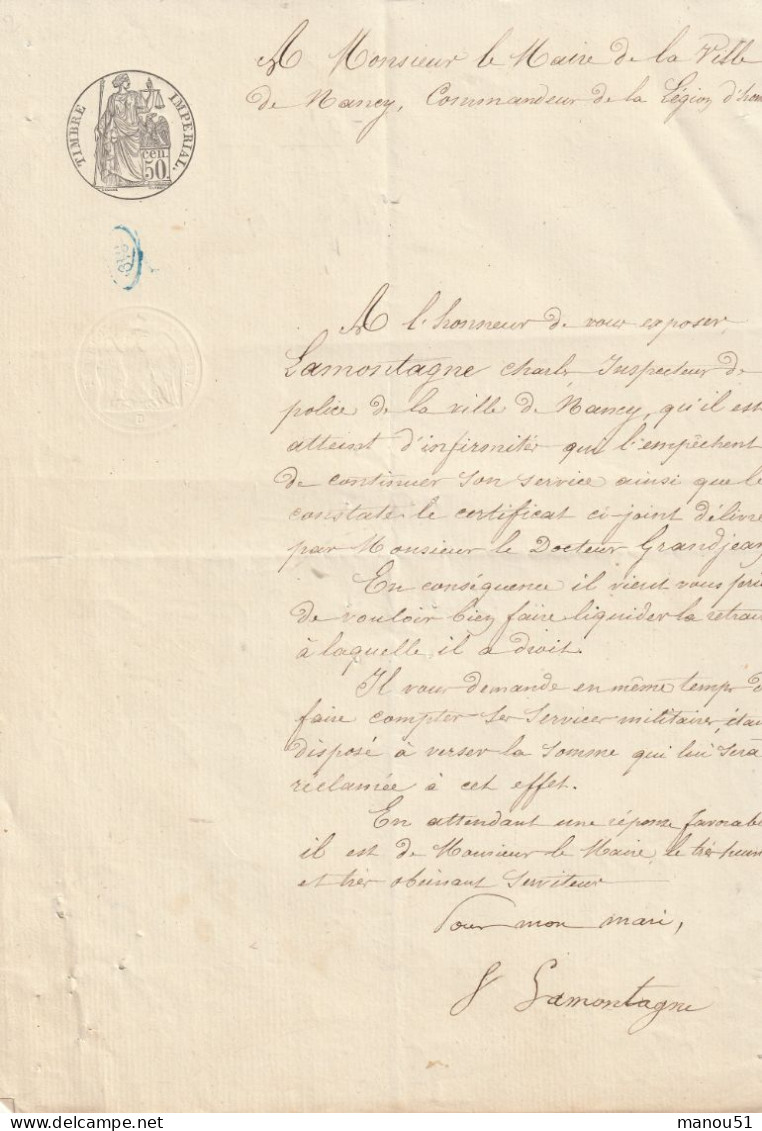 TIMBRE IMPERIAL.
cen.
50.
A Monsieur le Maire de la Ville
de Nancy, Commandeur de la Légion d'hon
A l'honneur de vous exposer,
Lamontagne Charles, Inspecteur de
police de la ville de Nancy, qu'il est
atteint d'infirmités qui l'empêchent
de continuer son service ainsi que le
constate le certificat ci-joint délivré
par Monsieur le Docteur Grandjean
En conséquence il vient vous prie
de vouloir bien faire liquider la retrai
à laquelle il a droit.
Il vous demande en même temps d
faire compter ses services militaires, étan
disposé à verser la somme qui lui sera
réclamée à cet effet.
En attendant une réponse favorab
il est de Monsieur le Maire, le très hum
et très obéissant Serviteur
Pour mon mari,
F Lamontagne
manou51